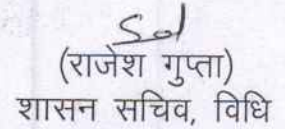 Sd
(राजेश गुप्ता)
शासन सचिव, विधि